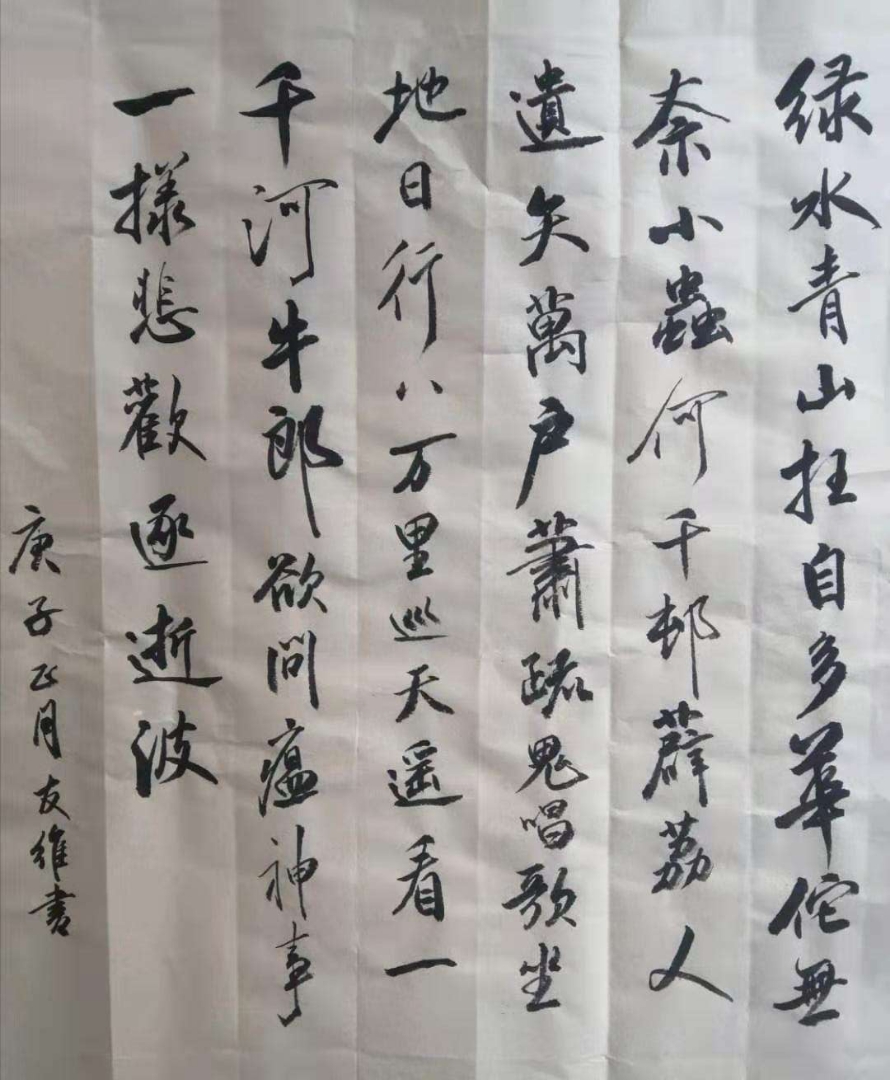 绿水青山枉自多華佗無
奈小蟲何千邨薜荔人
遺矢萬户蕭疏鬼唱歌坐
地日行八万里巡天遥看一
千河牛郎欲問瘟神事
一樣悲歡逐逝波
庚子正月友維書